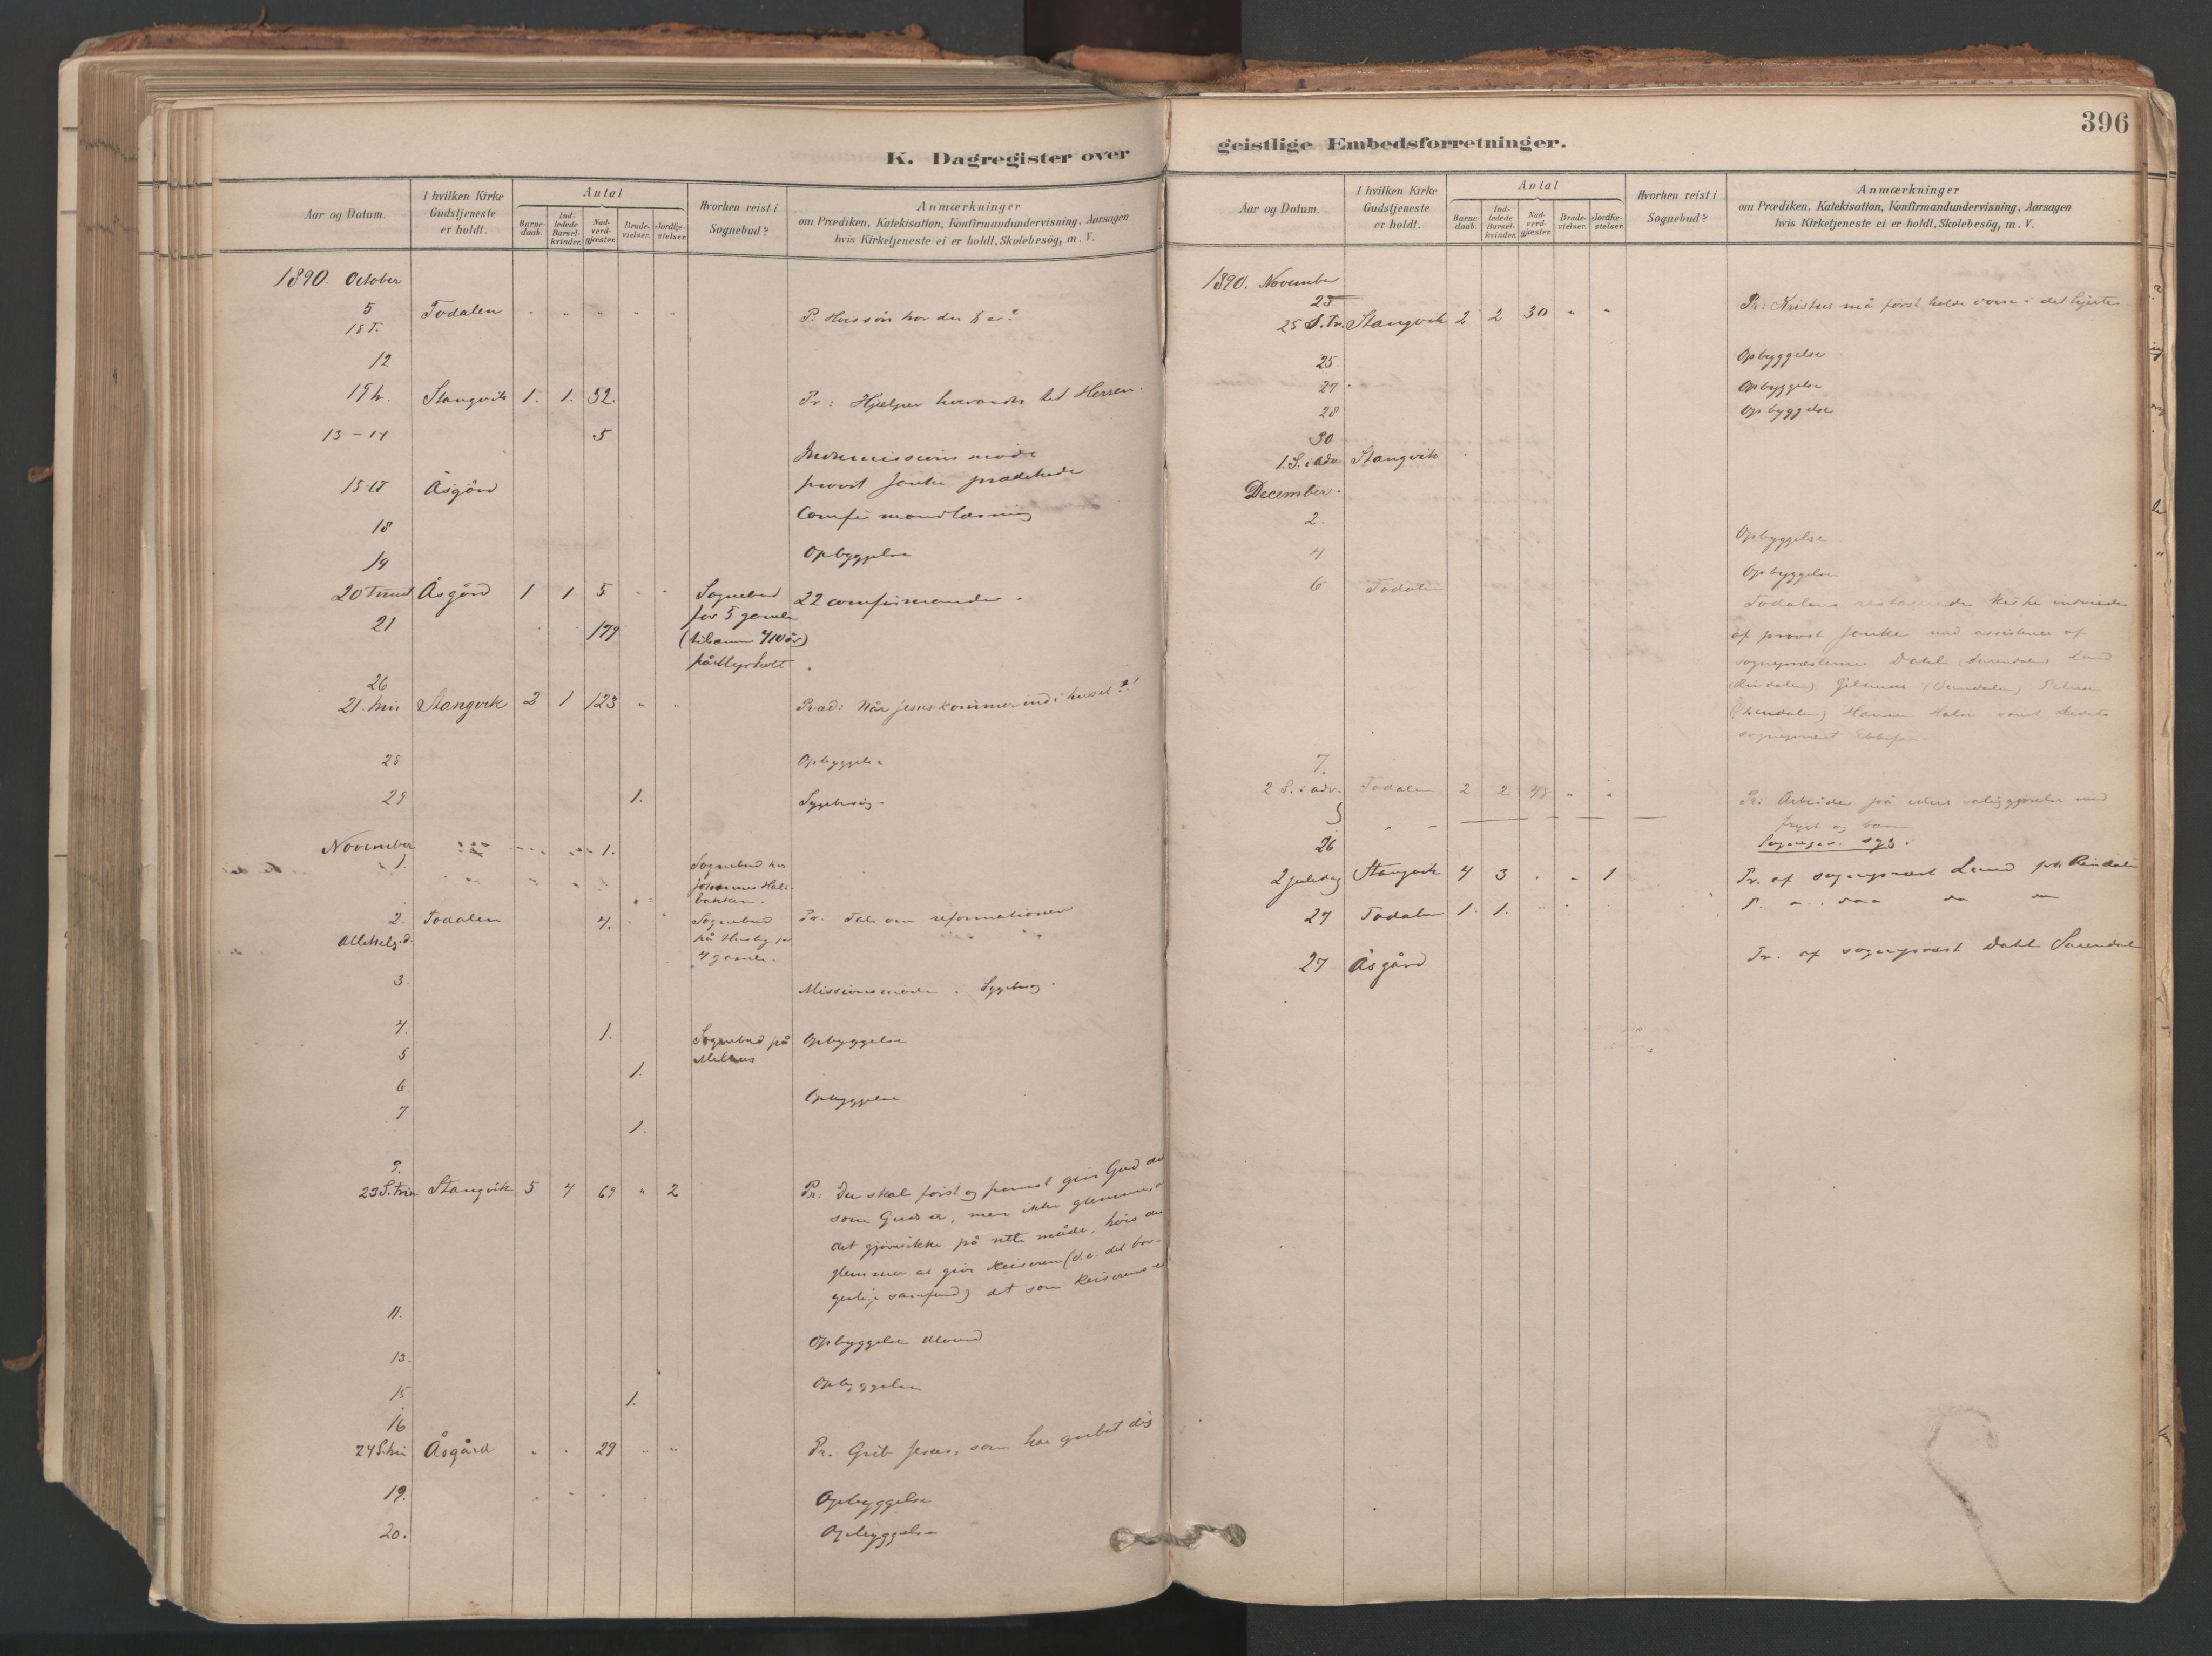 K. Dagregister over
Aar og Datum. I hvilken Kirke Gudstjeneste er holdt. Antal Barnedaab. Indledede Barselkvinder. Nadverdgjæster. Brudevielser. Jordfæstelser. Hvorhen reist i Sognebud? Anmærkninger om Prædiken, Katekisation, Konfirmandundervisning, Aarsagen hvis Kirketjeneste ei er holdt, Skolebesög, m. V.
1890. October
5 Todalen P:
18 T.
12
19 tr. Stangvik 1. 1. 52. Pr: Hjælper hverandre til Herren.
13-14 5
Indremissions møde
15-17 Åsgård provst Janke prædikede
18 Confirmandlæsning
19 Opbyggelse
20 Åsgård 1 1 5 Sognebud 22 confirmander.
for 5 gamle
21 179 (tilsammen 410 år)
på
26
21. trin Stangvik 2 1 123 Præd: Når Jesus kommer ind i huset?!
28 Opbyggelse
29 1. Sygebesøg.
November 1.
1. Sognebud hos
Johannes
bakken.
2. Todalen 4. Sognebud Pr. Tal om reformationen
Allehelg.d. på Husby for
4 gamle.
3. Missionsmøde. Sygebesøg.
4. 1. Sognebud på Opbyggelse
5 Melhus
1.
6 Opbyggelse
7
1.
9.
23 S. trin Stangvik 5 4 69 " 2 Pr. Du skal først og fremst give Gud det
som Guds er, men ikke glemme, at
det gjøres ikke på rette måde, hvis du
glemmer at give Keiseren (d.e. det bor-
gerlige samfund) det som Keiserens er
11. Opbyggelse
13. Opbyggelse
15 1.
16
24 S. trin Åsgård 29 Pr. Grib Jesus, som har grebet dig
19. Opbyggelse
20. Opbyggelse
396
geistlige Embedsforretninger.
Aar og Datum. I hvilken Kirke Gudstjeneste er holdt. Antal Barnedaab. Indledede Barselkvinder. Nadverdgjæster. Brudevielser. Jordfæstelser. Hvorhen reist i Sognebud? Anmærkninger om Prædiken, Katekisation, Konfirmandundervisning, Aarsagen hvis Kirketjeneste ei er holdt, Skolebesög, m. V.
1890. November
23
25 S. Tr. Stangvik 2 2 30 " " Pr: Kristus må først holde i det hjerte
25. Opbyggelse
27. Opbyggelse
28 Opbyggelse
30
1. S. i adv. Stangvik
December.
2. Opbyggelse
4 Opbyggelse
6 Todalen Todalens restaurerede kirke indviedes
af provst Janke med assistence af
sognepræsterne Dahl (Surendalen) Lund
(Rindalen)
Hansen Halsa samt stedets
sognepræst
7.
2 S. i adv. Todalen 2 2 48 " " Pr: Arbeider på eders saliggjørelse med
frygt og bæven
26 Sognepr. syg.
2 juledag Stangvik 4 3 . " 1 Pr. af sognepræst Lund fra Rindalen
27 Todalen 1. 1.
27 Åsgård Pr. af sognepræst Dahl Surendalen